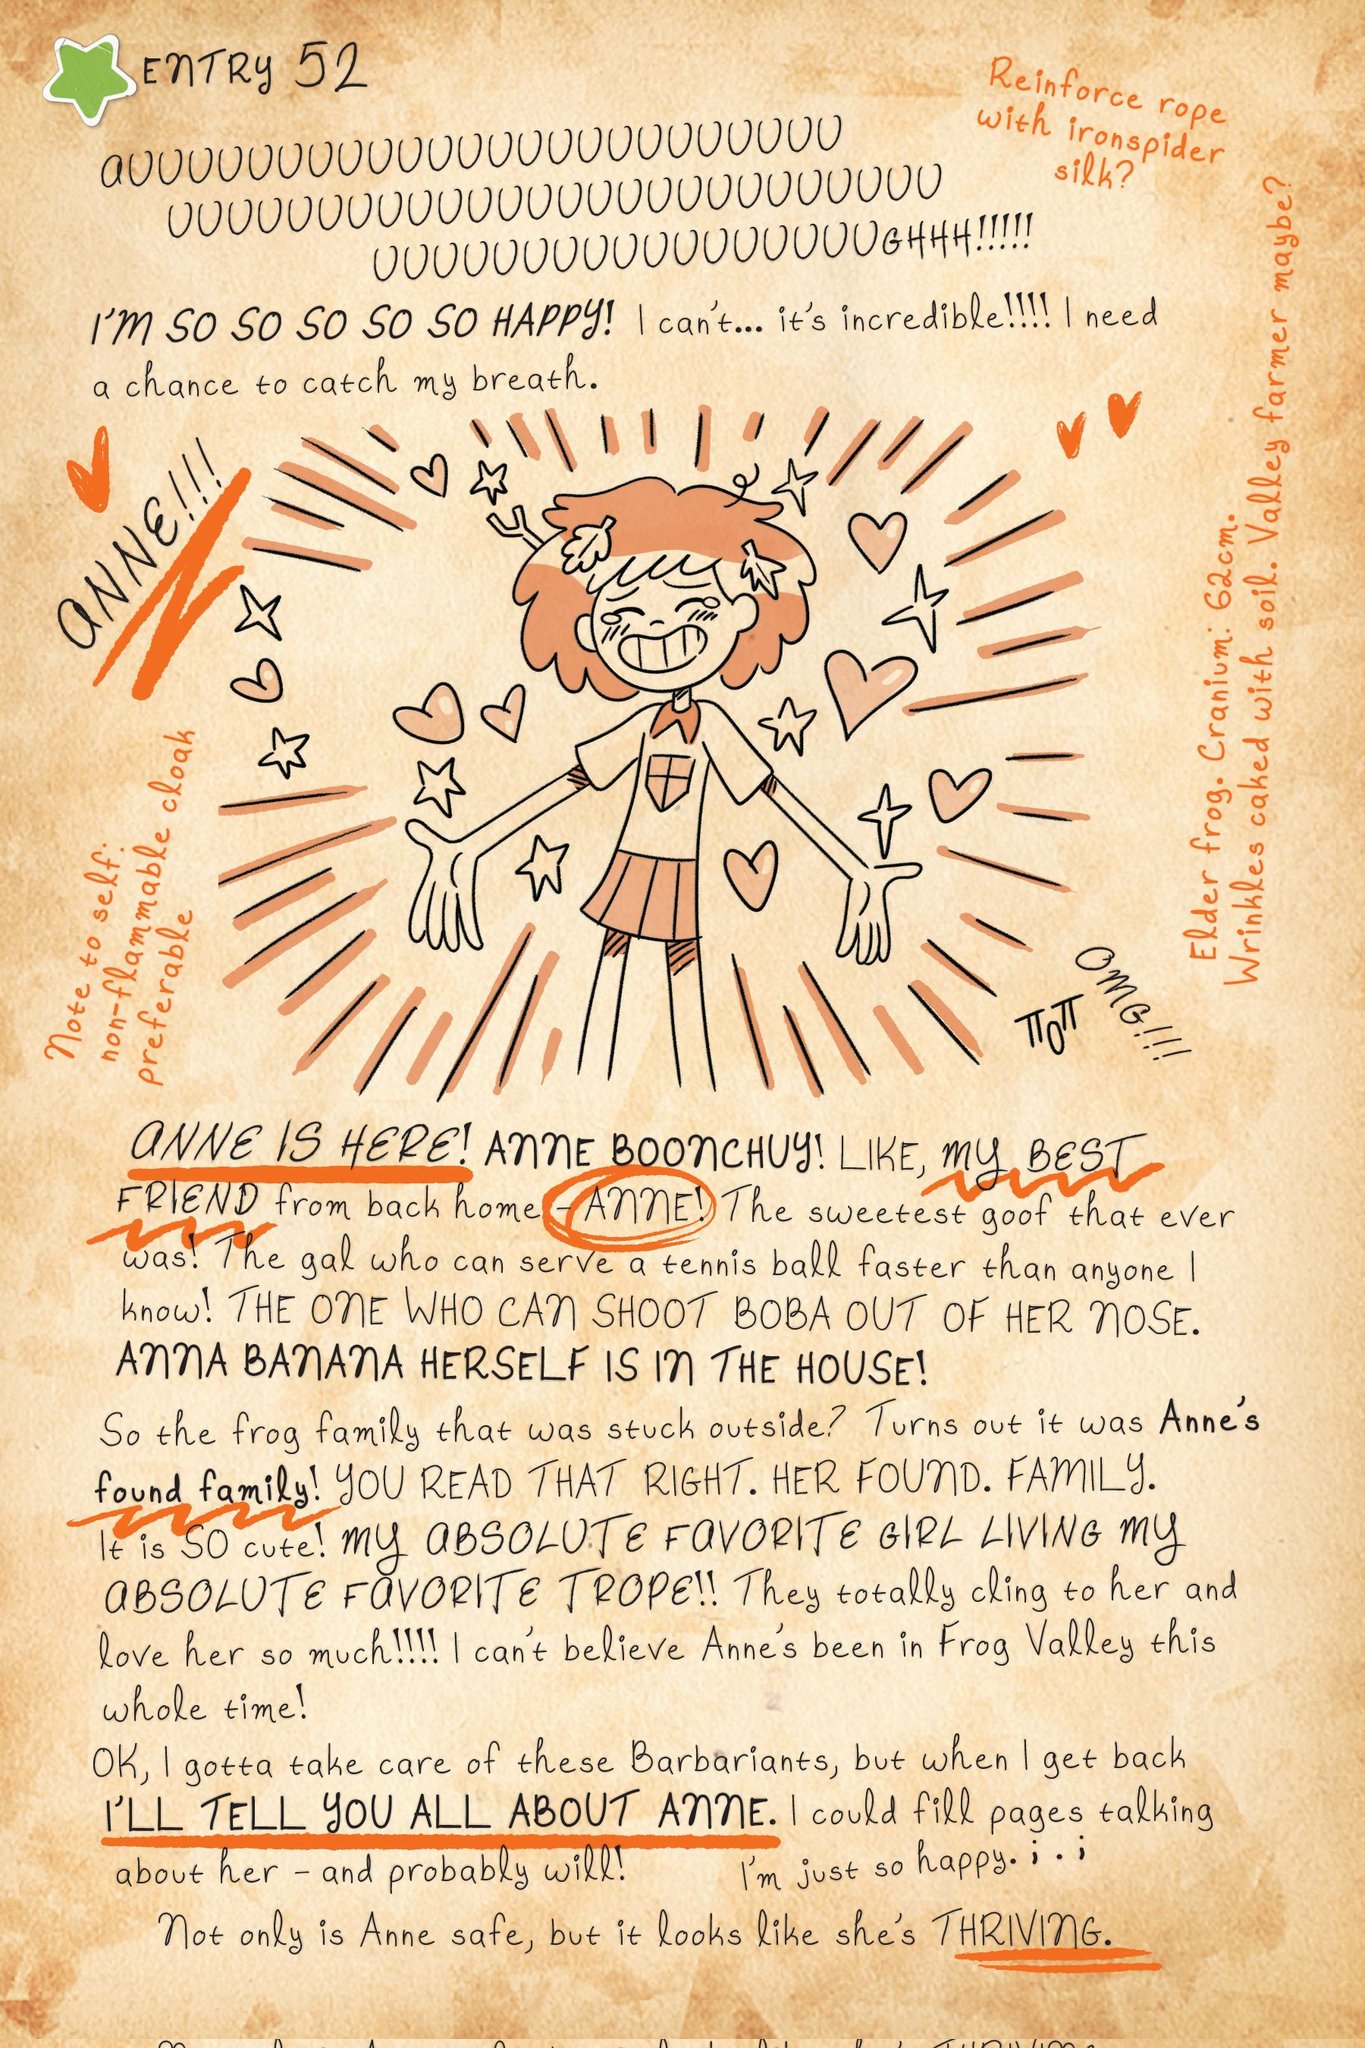 ENTRY 52
Reinforce rope
with ironspider
silk?
AUUUUUUUUUUUUUUUUUUUUUUUU
UUUUUUUUUUUUUUUUUUUUUUUUUU
UUUUUUUUUUUUUUUUUGHHH!!!!!
I'M SO SO SO SO SO HAPPY! I can't... it's incredible!!!! I need
a chance to catch my breath.
ANNE!!!
Elder frog. Cranium: 62cm.
Wrinkles caked with soil. Valley farmer maybe?
Note to self:
non-flammable cloak
preferable
OMG!!!
πOπ
ANNE IS HERE! ANNE BOONCHUY! LIKE, MY BEST
FRIEND from back home - ANNE! The sweetest goof that ever
was! The gal who can serve a tennis ball faster than anyone I
know! THE ONE WHO CAN SHOOT BOBA OUT OF HER NOSE.
ANNA BANANA HERSELF IS IN THE HOUSE!
So the frog family that was stuck outside? Turns out it was Anne's
found family! YOU READ THAT RIGHT. HER FOUND. FAMILY.
It is SO cute! MY ABSOLUTE FAVORITE GIRL LIVING MY
ABSOLUTE FAVORITE TROPE!! They totally cling to her and
love her so much!!!! I can't believe Anne's been in Frog Valley this
whole time!
OK, I gotta take care of these Barbariants, but when I get back
I'LL TELL YOU ALL ABOUT ANNE. I could fill pages talking
about her - and probably will! I'm just so happy. ; . ;
Not only is Anne safe, but it looks like she's THRIVING.